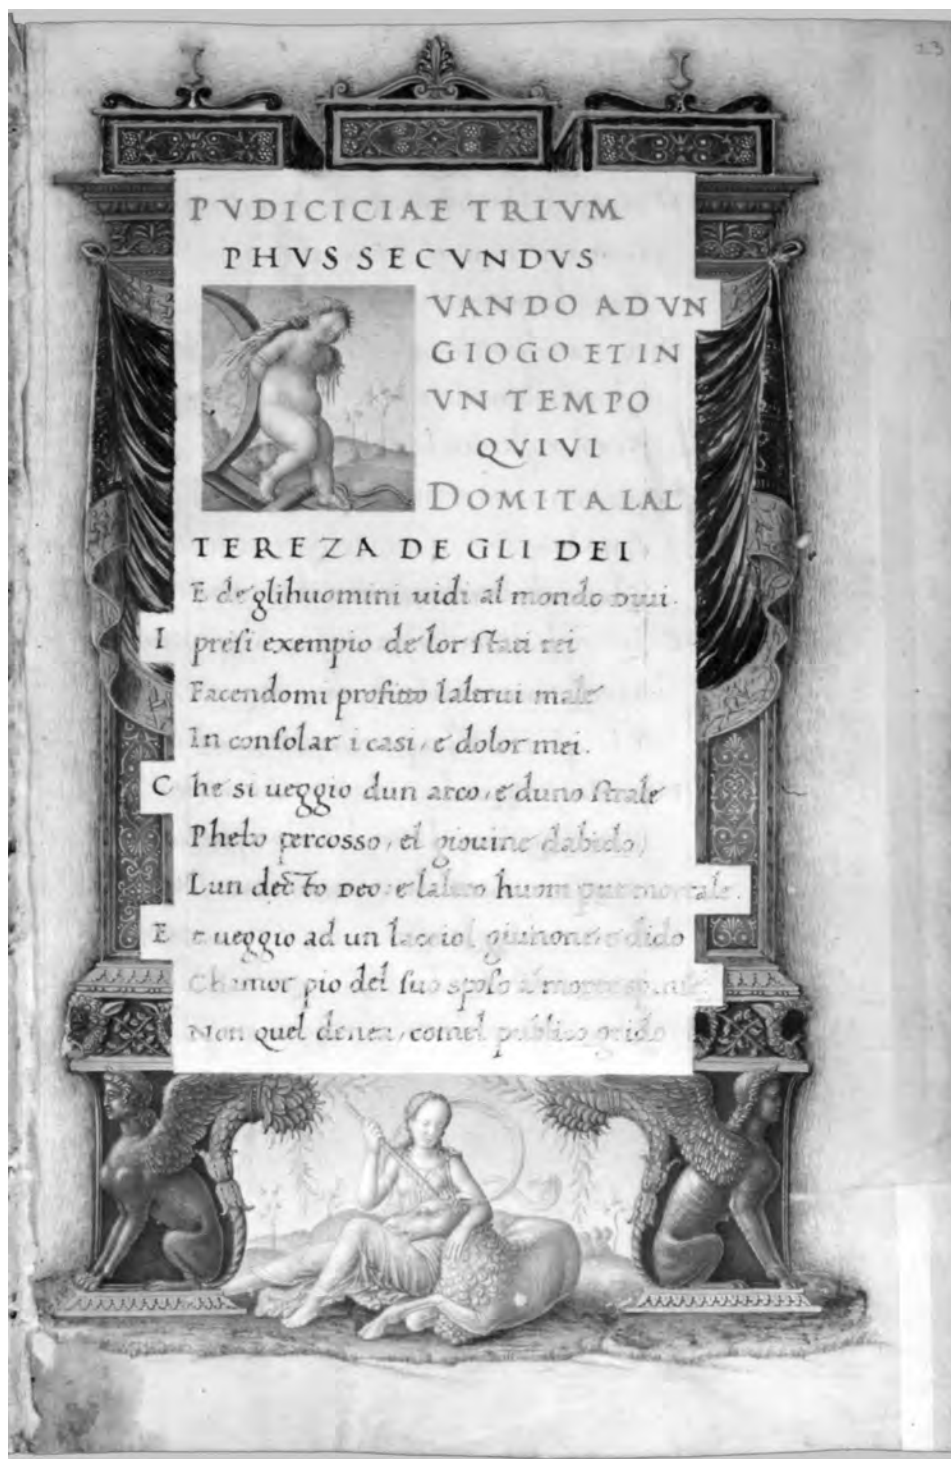 23
PVDICICIAE TRIVM
PHVS SECVNDVS
VANDO AD VN
GIOGO ET IN
VN TEMPO
QVIVI
DOMITA LAL
TEREZA DE GLI DEI
E de glihuomini uidi al mondo diui.
I presi exempio de lor stati rei
Facendomi profitto laltrui male
In consolar i casi, e dolor mei.
C he si ueggio dun arco, e duno strale
Phebo percosso, el giouine dabido,
Lun decto deo, e laltro huom pur mortale.
E t ueggio ad un lacciol giunone, e dido
Chamor pio del suo sposo a morte spinse,
Non quel denea, comel publico grido